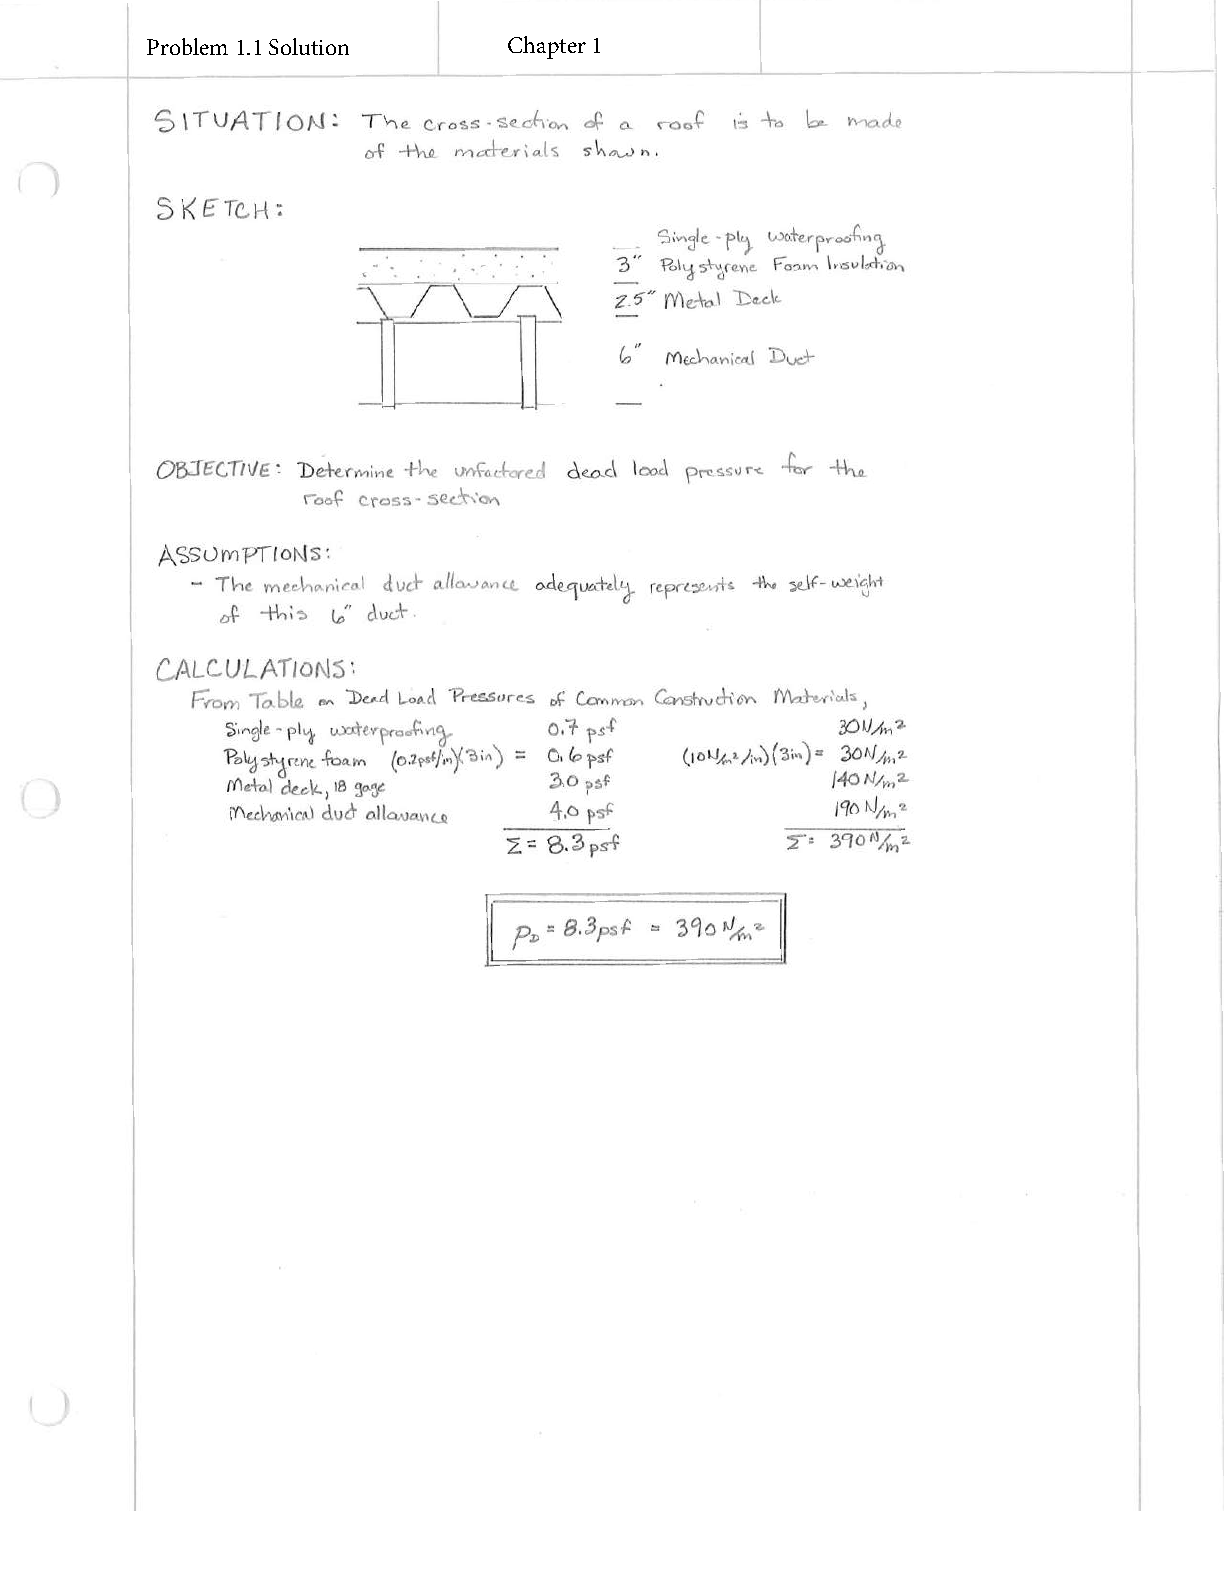 Problem 1.1 Solution
Chapter 1
SITUATION: The cross-section of a roof is to be made
of the materials shown.
SKETCH:
Single-ply waterproofing
3" Polystyrene Foam Insulation
2.5" Metal Deck
6" Mechanical Duct
OBJECTIVE: Determine the unfactored dead load pressure for the
roof cross-section
ASSUMPTIONS:
- The mechanical duct allowance adequately represents the self-weight
of this 6" duct.
CALCULATIONS:
From Table on Dead Load Pressures of Common Construction Materials,
Single-ply waterproofing 0.7 psf 30 N/m²
Polystyrene foam (0.2psf/in)(3in) = 0.6 psf (10N/m²/in)(3in) = 30N/m²
Metal deck, 18 gage 3.0 psf 140 N/m²
Mechanical duct allowance 4.0 psf 190 N/m²
Σ = 8.3 psf Σ = 390 N/m²
P_D = 8.3psf = 390 N/m²